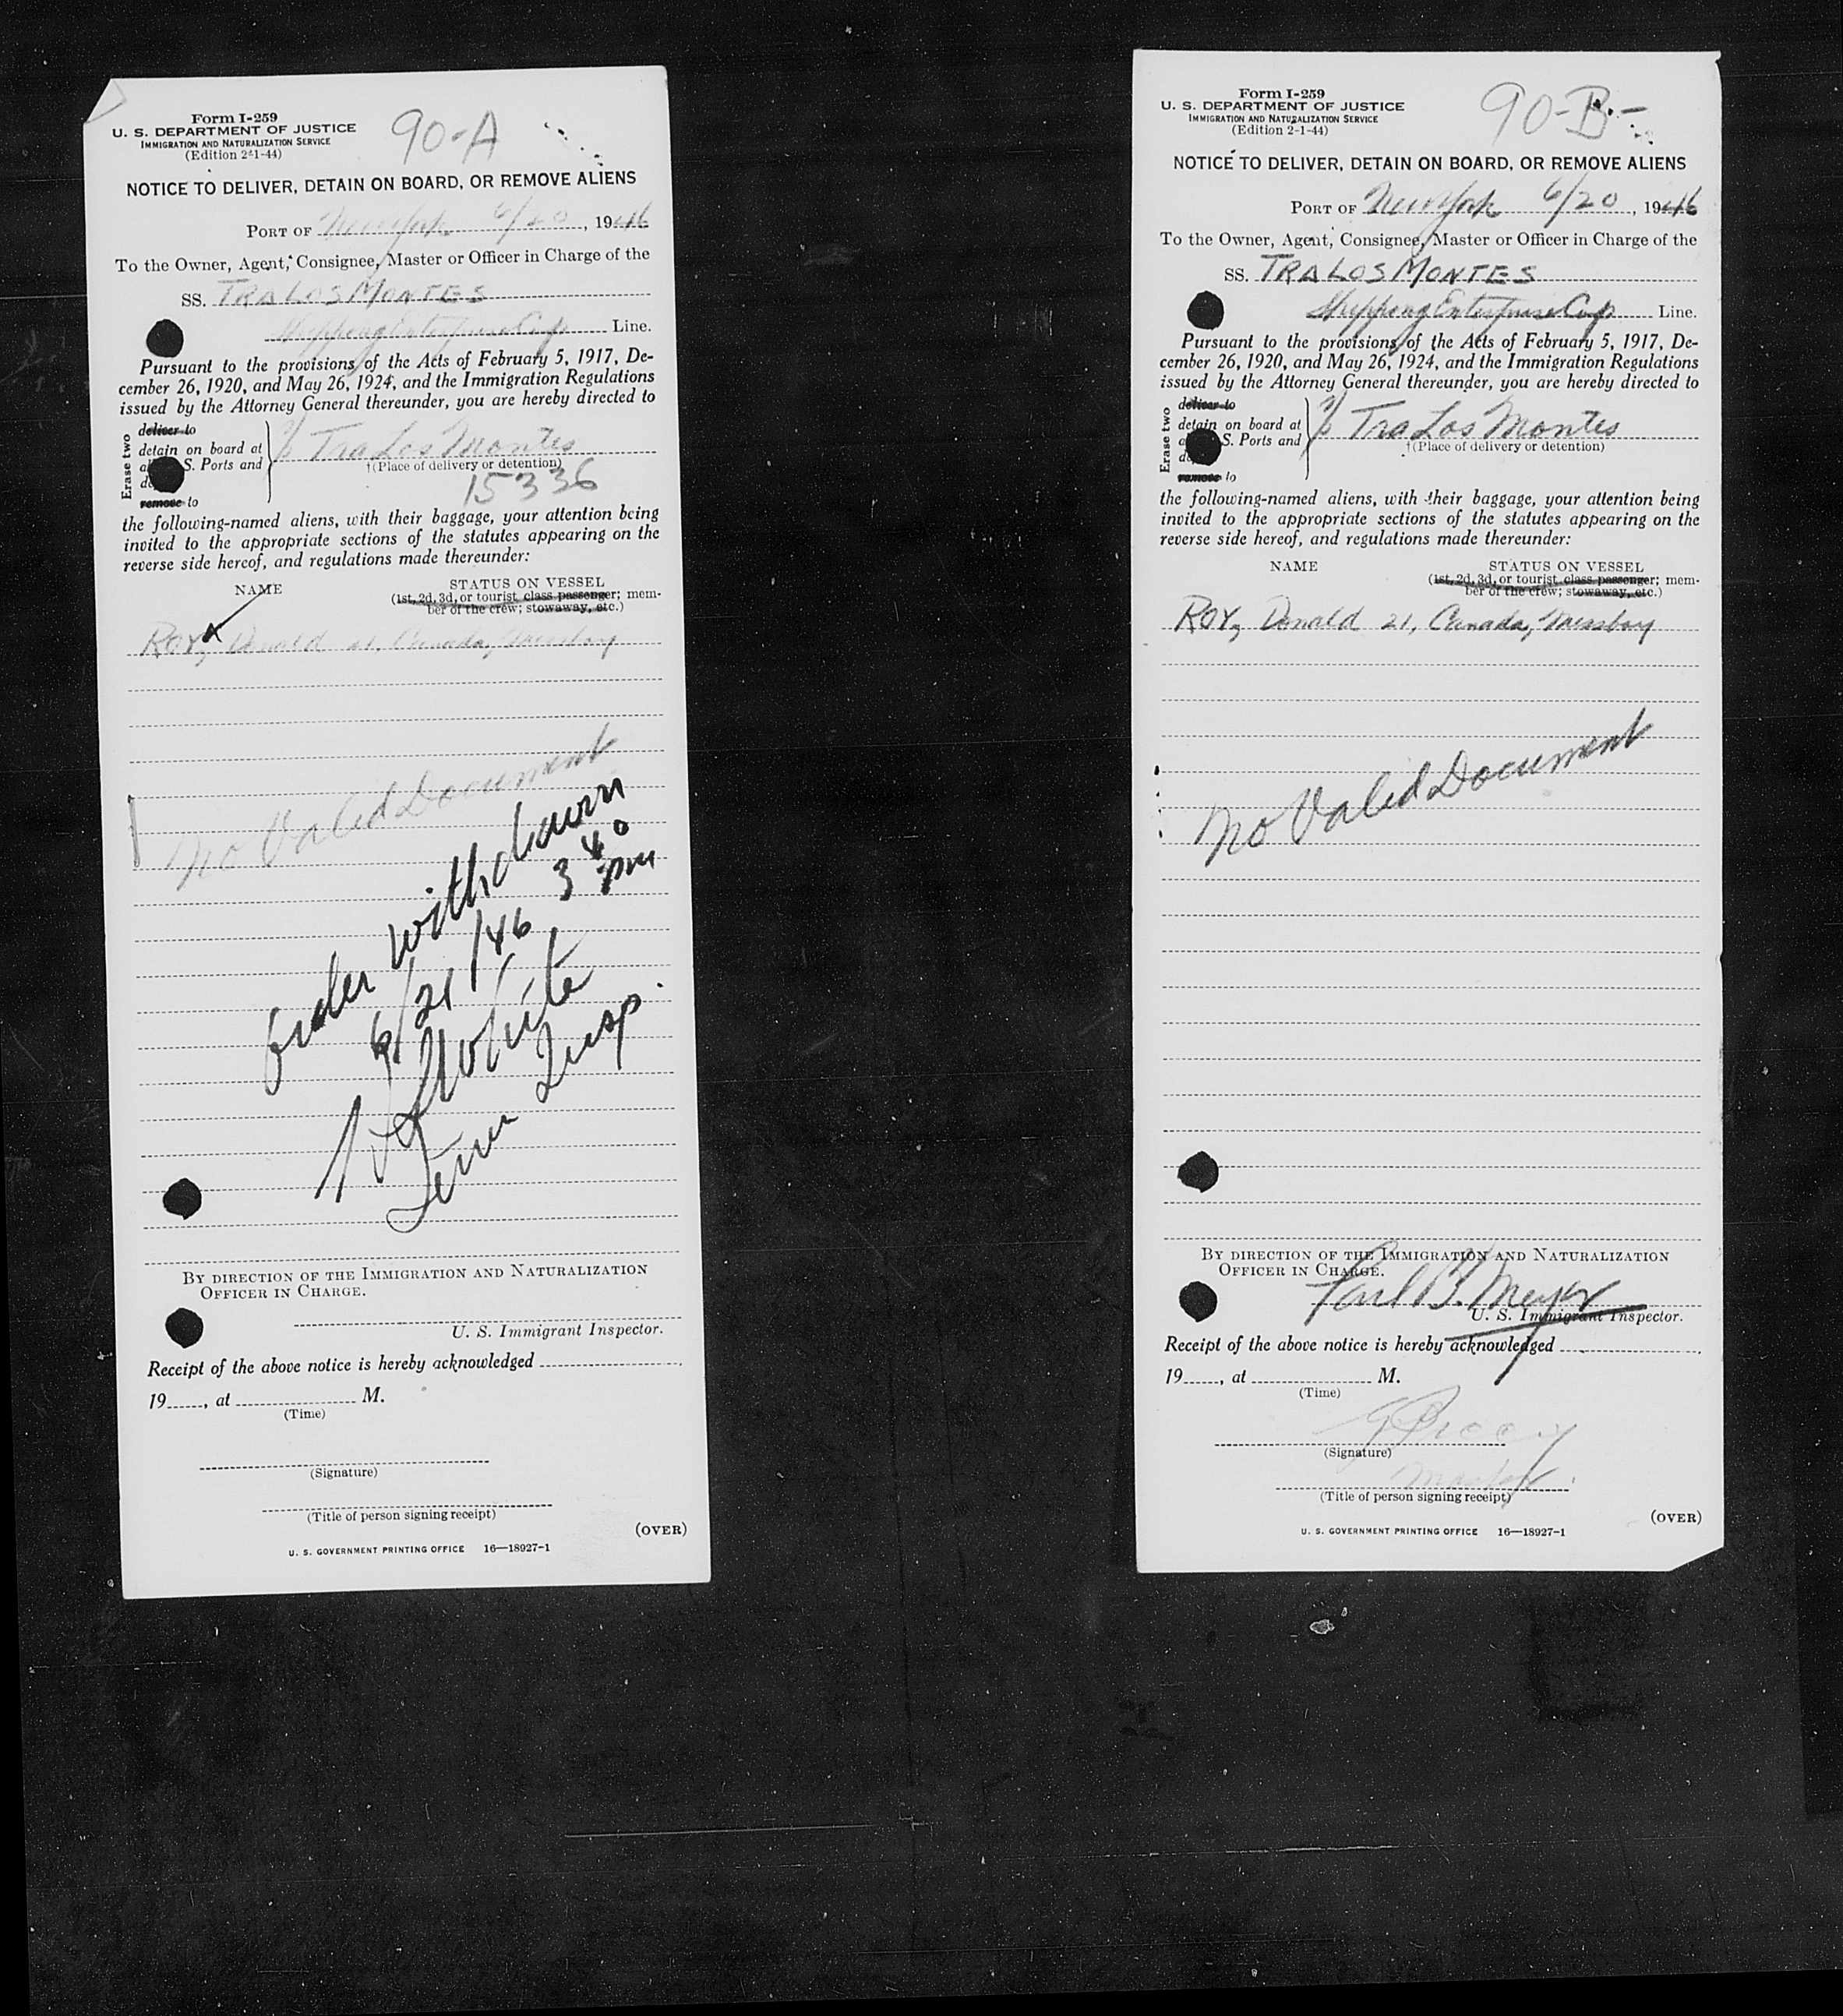 Form I-259
U. S. DEPARTMENT OF JUSTICE
IMMIGRATION AND NATURALIZATION SERVICE
(Edition 2-1-44)
90-A
NOTICE TO DELIVER, DETAIN ON BOARD, OR REMOVE ALIENS
PORT OF New York 6/20, 1946
To the Owner, Agent, Consignee, Master or Officer in Charge of the
SS. TRA LOS MONTES
Shipping Enterprise Corp Line.
Pursuant to the provisions of the Acts of February 5, 1917, De-
cember 26, 1920, and May 26, 1924, and the Immigration Regulations
issued by the Attorney General thereunder, you are hereby directed to
Erase two
deliver to
detain on board at
S. Ports and
remove to
Tra Los Montes
†(Place of delivery or detention)
15336
the following-named aliens, with their baggage, your attention being
invited to the appropriate sections of the statutes appearing on the
reverse side hereof, and regulations made thereunder:
NAME STATUS ON VESSEL
(1st, 2d, 3d, or tourist class passenger; mem-
ber of the crew; stowaway, etc.)
ROY, Donald 21, Canada, Messboy
No Valid Document
Order withdrawn
6/21/46 3 40 pm
White
Insp.
BY DIRECTION OF THE IMMIGRATION AND NATURALIZATION
OFFICER IN CHARGE.
U. S. Immigrant Inspector.
Receipt of the above notice is hereby acknowledged
19, at M.
(Time)
(Signature)
(Title of person signing receipt)
(OVER)
U. S. GOVERNMENT PRINTING OFFICE 16—18927-1
Form I-259
U. S. DEPARTMENT OF JUSTICE
IMMIGRATION AND NATURALIZATION SERVICE
(Edition 2-1-44)
90-B-
NOTICE TO DELIVER, DETAIN ON BOARD, OR REMOVE ALIENS
PORT OF New York 6/20, 1946
To the Owner, Agent, Consignee, Master or Officer in Charge of the
SS. TRA LOS MONTES
Shipping Enterprise Corp Line.
Pursuant to the provisions of the Acts of February 5, 1917, De-
cember 26, 1920, and May 26, 1924, and the Immigration Regulations
issued by the Attorney General thereunder, you are hereby directed to
Erase two
deliver to
detain on board at
S. Ports and
remove to
Tra Los Montes
†(Place of delivery or detention)
the following-named aliens, with their baggage, your attention being
invited to the appropriate sections of the statutes appearing on the
reverse side hereof, and regulations made thereunder:
NAME STATUS ON VESSEL
(1st, 2d, 3d, or tourist class passenger; mem-
ber of the crew; stowaway, etc.)
ROY, Donald 21, Canada, Messboy
No Valid Document
BY DIRECTION OF THE IMMIGRATION AND NATURALIZATION
OFFICER IN CHARGE.
Paul B. Meyer
U. S. Immigrant Inspector.
Receipt of the above notice is hereby acknowledged
19, at M.
(Time)
(Signature)
Master.
(Title of person signing receipt)
(OVER)
U. S. GOVERNMENT PRINTING OFFICE 16—18927-1